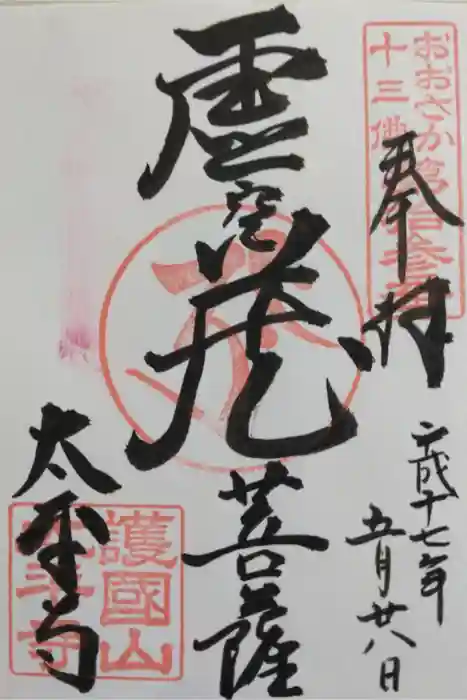 おおさか第十三番
十三佛
奉拝
平成十七年
五月廿八日
虚空蔵菩薩
太平寺
護國山
太平寺